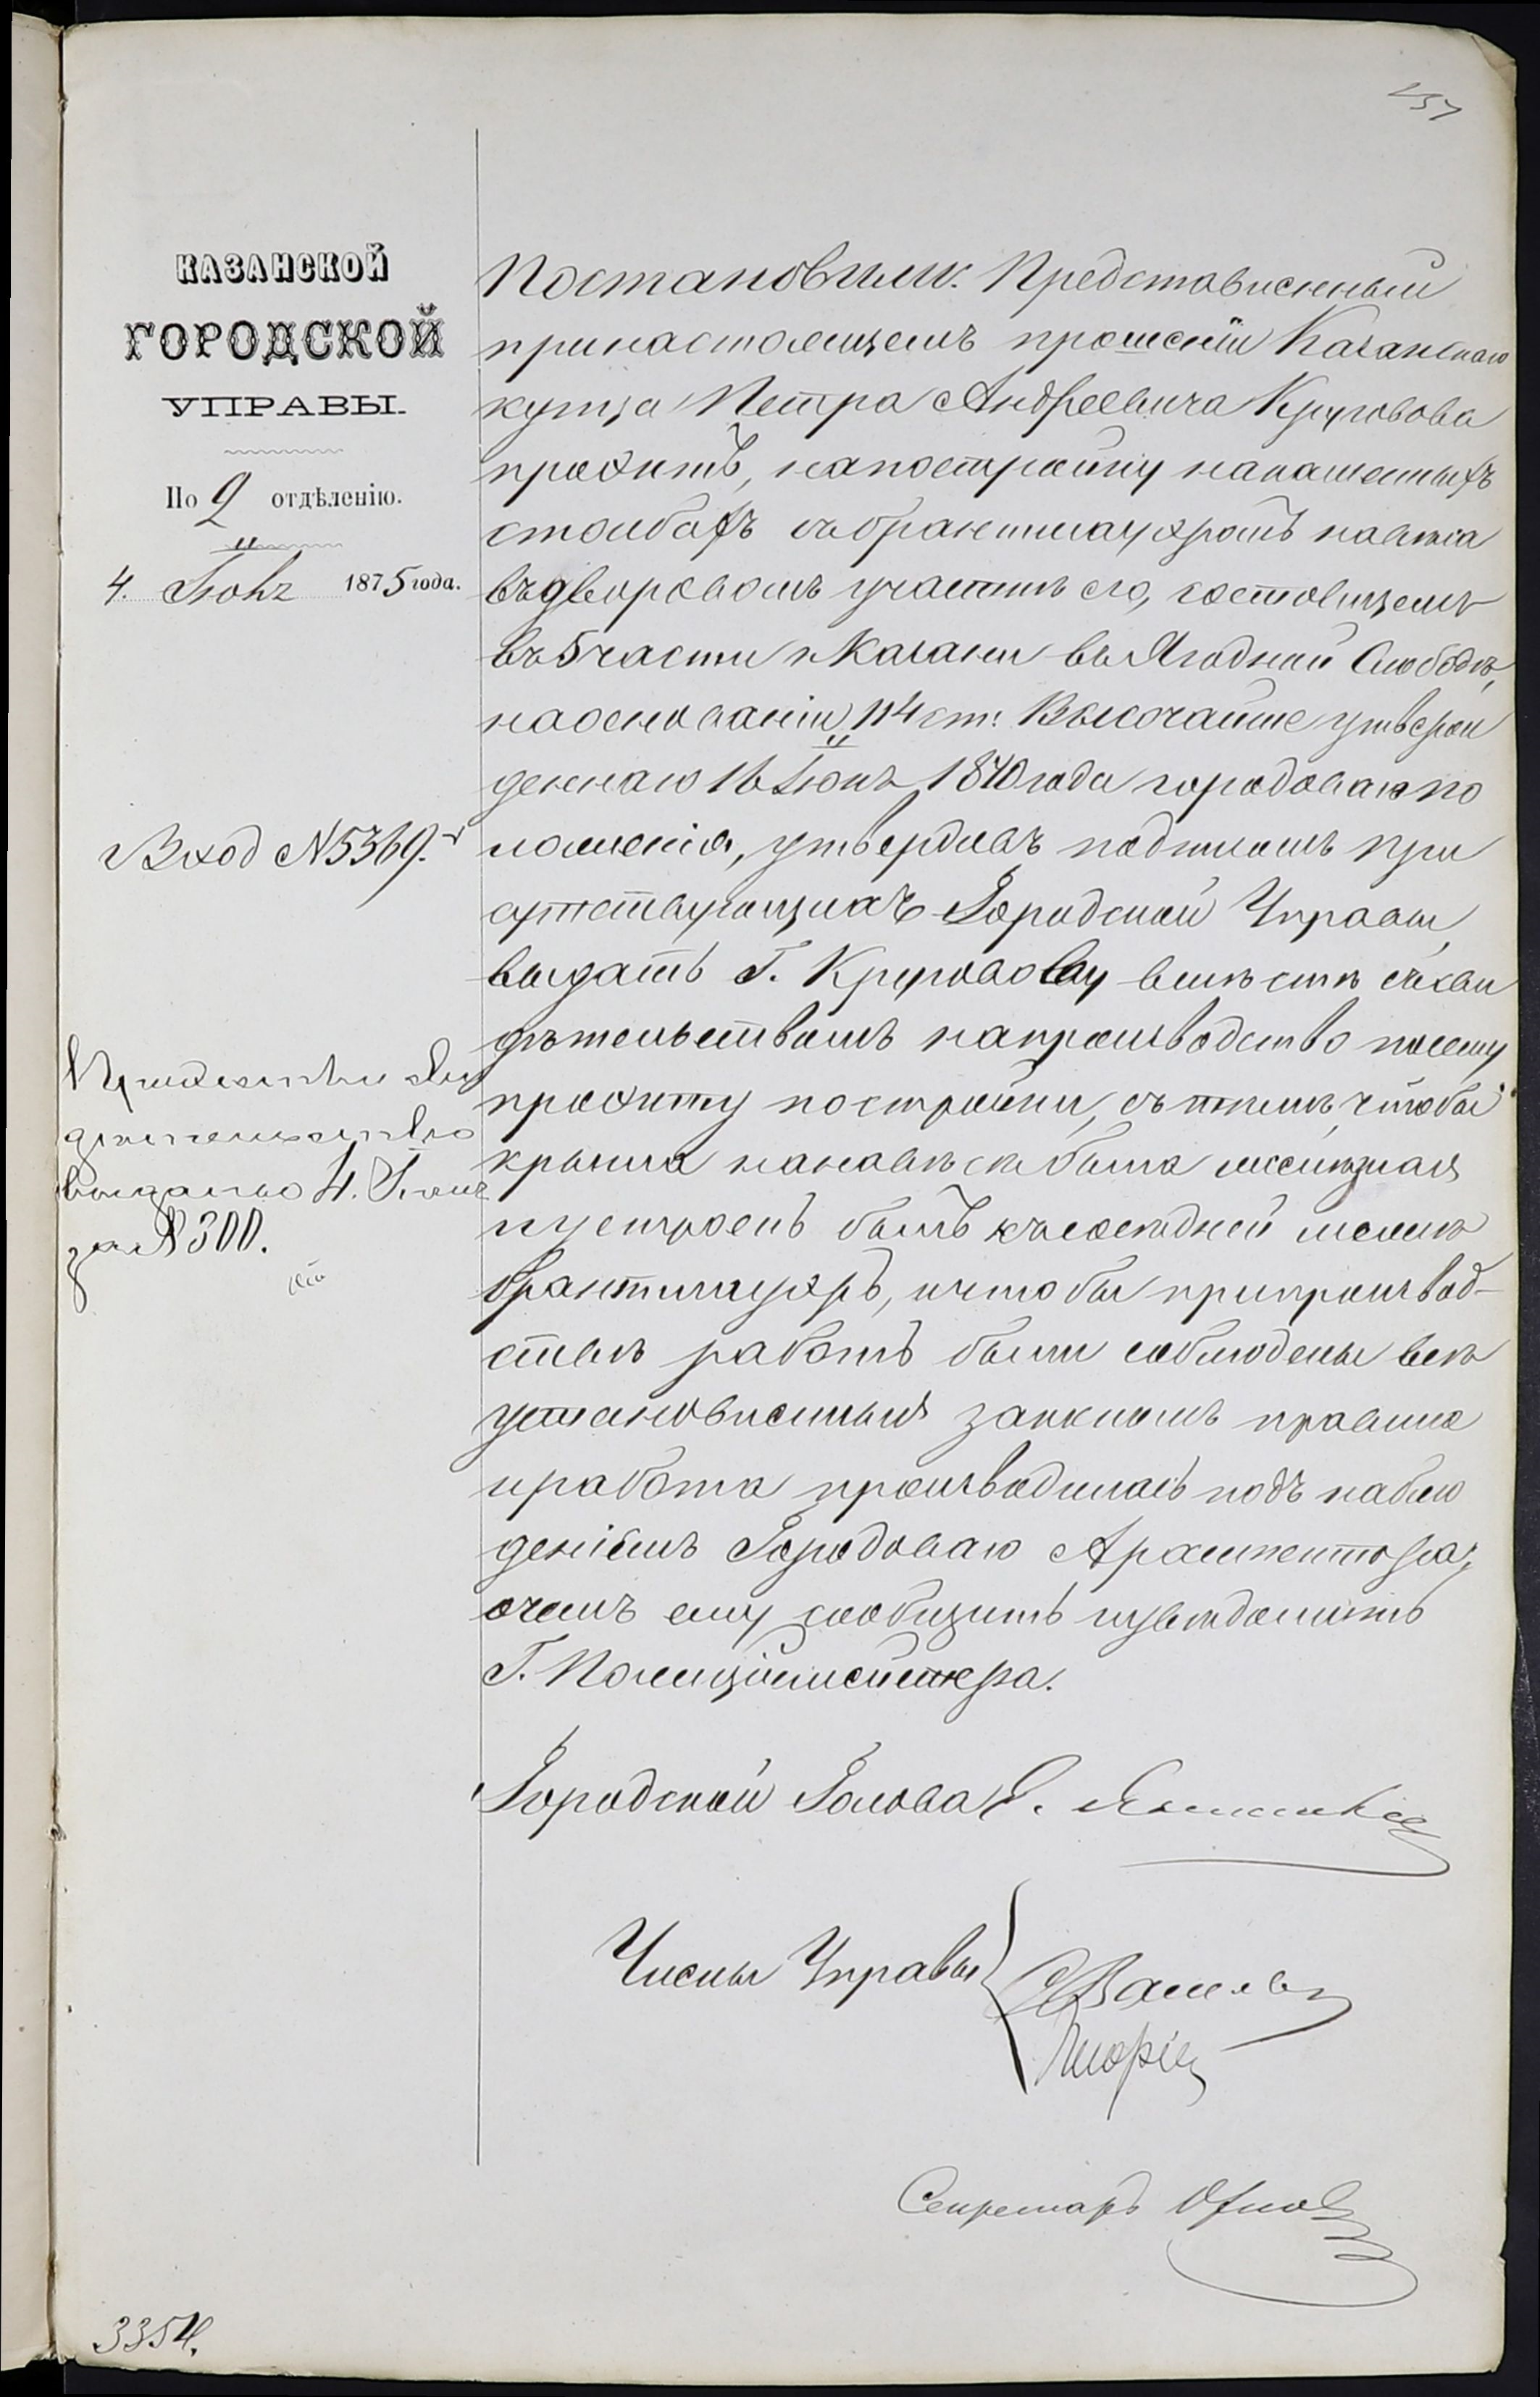 КАЗАНСКОЙ
ГОРОДСКОЙ
УПРАВЫ.
По 2 отдѣленію.
4. Іюня 1875 года.
Вход №5369.
Проэктъ и сви
дѣтельство
выдано 4. Іюня
за №300.
Постановили: Представленный
принастоящемъ прошеніи Казанскаго
купца Петра Андреевича Круговова
проэктъ, напостройку накаменныхъ
столбахъ съ брантмауэромъ навѣса
въ дворовомъ участкѣ его, состоящемъ
въ 5 части г. Казани въ Ягодной Слободѣ,
наоснованіи 114 ст. Высочайше утверж
деннаго 16 Іюня 1870 года городоваго по
ложенія, утвердивъ подписомъ при
сутствующихъ Городской Управы,
выдать Г. Круговову вмѣстѣ съ сви
дѣтельствомъ напроизводство посему
проэкту постройки, съ тѣмъ, чтобы
крыша нанавѣсѣ была желѣзная
и устроенъ былъ къ сосѣдней межѣ
брантмауэръ, и чтобы припроизвод-
ствѣ работъ были соблюдены всѣ
установленныя закономъ правила
и работа производилась подъ наблю
деніемъ Городоваго Архитектора;
очемъ ему сообщить и увѣдомить
Г. Полиціймейстера.
Городской Голова Е.
Члены Управы
Секретарь
3354.